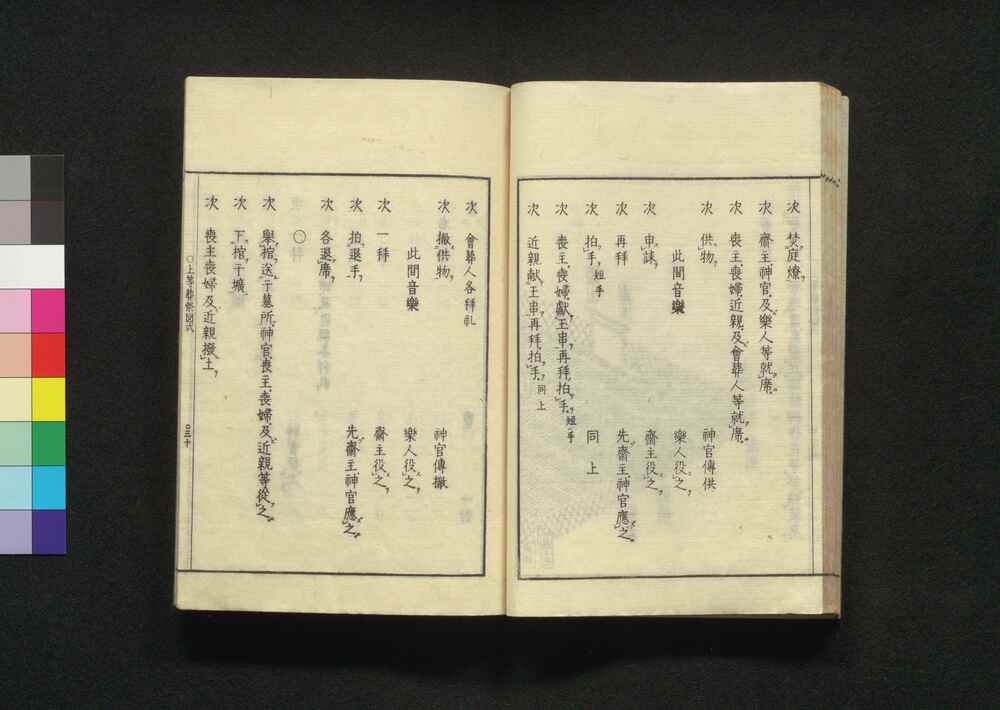 次 焚庭燎
次 齋主神官及樂人等就席
次 喪主喪婦近親及會葬人等就席
次 供物 神官傳供
此間音樂 樂人役之
次 申誄 齋主役之
次 再拜 先齋主神官應之
次 拍手 短手 同上
次 喪主喪婦獻玉串再拜拍手 短手
次 近親獻玉串再拜拍手 同上
次 會葬人各拜礼
次 撤供物 神官傳撤
此間音樂 樂人役之
次 一拜 齋主役之
次 拍退手 先齋主神官應之
次 各退席
〇
次 舉棺送于墓所神官喪主喪婦及近親等從之
次 下棺于壙
次 喪主喪婦及近親撥土
〇上等葬祭圖式 〇三十